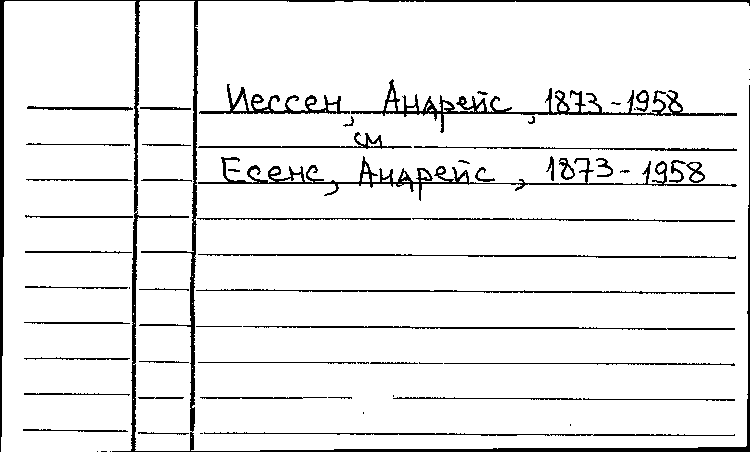 Иессен, Андрейс, 1873-1958
см
Есенс, Андрейс, 1873-1958